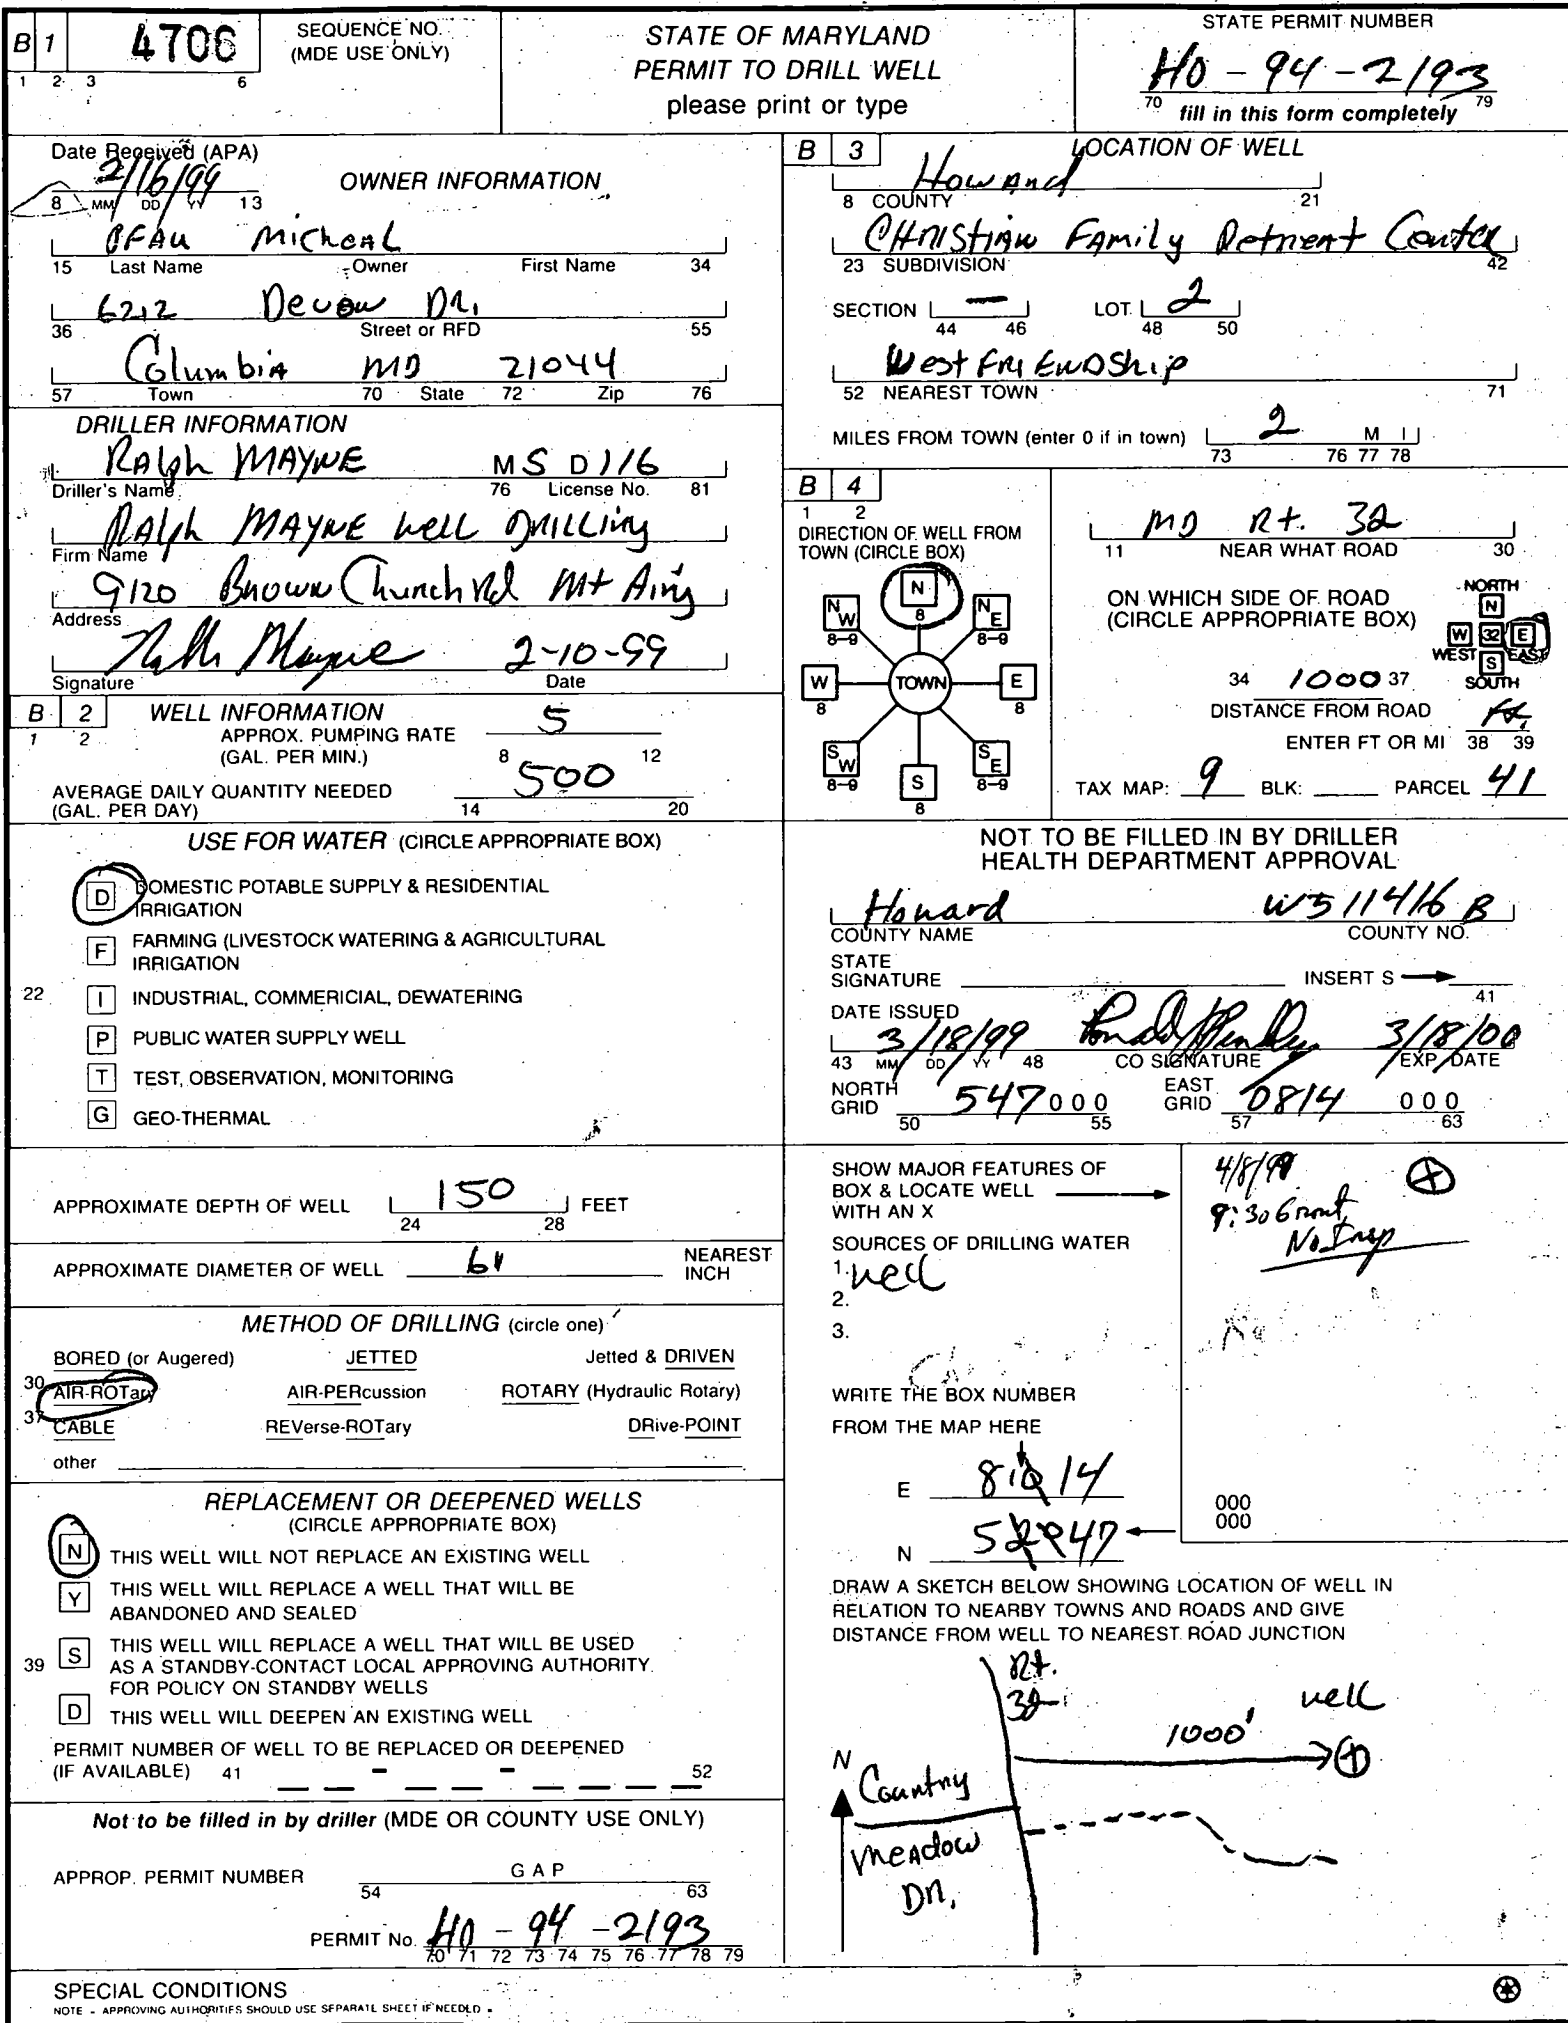 B 1 4706 SEQUENCE NO. (MDE USE ONLY)
1 2 3 6
STATE OF MARYLAND
PERMIT TO DRILL WELL
please print or type
STATE PERMIT NUMBER
HO - 94 - 2193
70 79
fill in this form completely
Date Received (APA)
2/16/99
8 MM DD YY 13
OWNER INFORMATION
PFAU Micheal
15 Last Name Owner First Name 34
6212 Devon Dr.
36 Street or RFD 55
Columbia MD 21044
57 Town 70 State 72 Zip 76
DRILLER INFORMATION
Ralph MAYNE MS D116
Driller's Name 76 License No. 81
Ralph MAYNE Well Drilling
Firm Name
9120 Brown Church Rd Mt Airy
Address
Ralph Mayne 2-10-99
Signature Date
B 2 WELL INFORMATION
1 2
APPROX. PUMPING RATE
(GAL. PER MIN.) 5
8 12
AVERAGE DAILY QUANTITY NEEDED
(GAL. PER DAY) 500
14 20
USE FOR WATER (CIRCLE APPROPRIATE BOX)
D DOMESTIC POTABLE SUPPLY & RESIDENTIAL
IRRIGATION
F FARMING (LIVESTOCK WATERING & AGRICULTURAL
IRRIGATION
22 I INDUSTRIAL, COMMERICIAL, DEWATERING
P PUBLIC WATER SUPPLY WELL
T TEST, OBSERVATION, MONITORING
G GEO-THERMAL
APPROXIMATE DEPTH OF WELL 150 FEET
24 28
APPROXIMATE DIAMETER OF WELL 6" NEAREST
INCH
METHOD OF DRILLING (circle one)
BORED (or Augered) JETTED Jetted & DRIVEN
30 AIR-ROTary AIR-PERcussion ROTARY (Hydraulic Rotary)
37 CABLE REVerse-ROTary DRive-POINT
other
REPLACEMENT OR DEEPENED WELLS
(CIRCLE APPROPRIATE BOX)
N THIS WELL WILL NOT REPLACE AN EXISTING WELL
Y THIS WELL WILL REPLACE A WELL THAT WILL BE
ABANDONED AND SEALED
39 S THIS WELL WILL REPLACE A WELL THAT WILL BE USED
AS A STANDBY-CONTACT LOCAL APPROVING AUTHORITY
FOR POLICY ON STANDBY WELLS
D THIS WELL WILL DEEPEN AN EXISTING WELL
PERMIT NUMBER OF WELL TO BE REPLACED OR DEEPENED
(IF AVAILABLE) 41 - - 52
Not to be filled in by driller (MDE OR COUNTY USE ONLY)
APPROP. PERMIT NUMBER G A P
54 63
PERMIT No. HO - 94 - 2193
70 71 72 73 74 75 76 77 78 79
SPECIAL CONDITIONS
NOTE - APPROVING AUTHORITIES SHOULD USE SEPARATE SHEET IF NEEDED -
B 3 LOCATION OF WELL
Howard
8 COUNTY 21
CHristian Family Retreat Center
23 SUBDIVISION 42
SECTION — LOT 2
44 46 48 50
West Friendship
52 NEAREST TOWN 71
MILES FROM TOWN (enter 0 if in town) 2 M I
73 76 77 78
B 4
1 2
DIRECTION OF WELL FROM
TOWN (CIRCLE BOX)
N 8
NW 8-9 NE 8-9
W 8 TOWN E 8
SW 8-9 SE 8-9
S 8
MD Rt. 32
11 NEAR WHAT ROAD 30
ON WHICH SIDE OF ROAD
(CIRCLE APPROPRIATE BOX)
NORTH
N
W 32 E
WEST EAST
S
SOUTH
34 1000 37
DISTANCE FROM ROAD ft.
ENTER FT OR MI 38 39
TAX MAP: 9 BLK: PARCEL 41
NOT TO BE FILLED IN BY DRILLER
HEALTH DEPARTMENT APPROVAL
Howard W511416 B
COUNTY NAME COUNTY NO.
STATE
SIGNATURE INSERT S
41
DATE ISSUED
3/18/99 3/18/00
43 MM DD YY 48 CO SIGNATURE EXP DATE
NORTH
GRID 547 0 0 0 EAST
GRID 0814 0 0 0
50 55 57 63
SHOW MAJOR FEATURES OF
BOX & LOCATE WELL
WITH AN X
4/8/99
9:30 Grout
No Insp
SOURCES OF DRILLING WATER
1. well
2.
3.
WRITE THE BOX NUMBER
FROM THE MAP HERE
E 814
N 547
000
000
DRAW A SKETCH BELOW SHOWING LOCATION OF WELL IN
RELATION TO NEARBY TOWNS AND ROADS AND GIVE
DISTANCE FROM WELL TO NEAREST ROAD JUNCTION
Rt.
32
well
1000'
N
Country
Meadow
Dr.